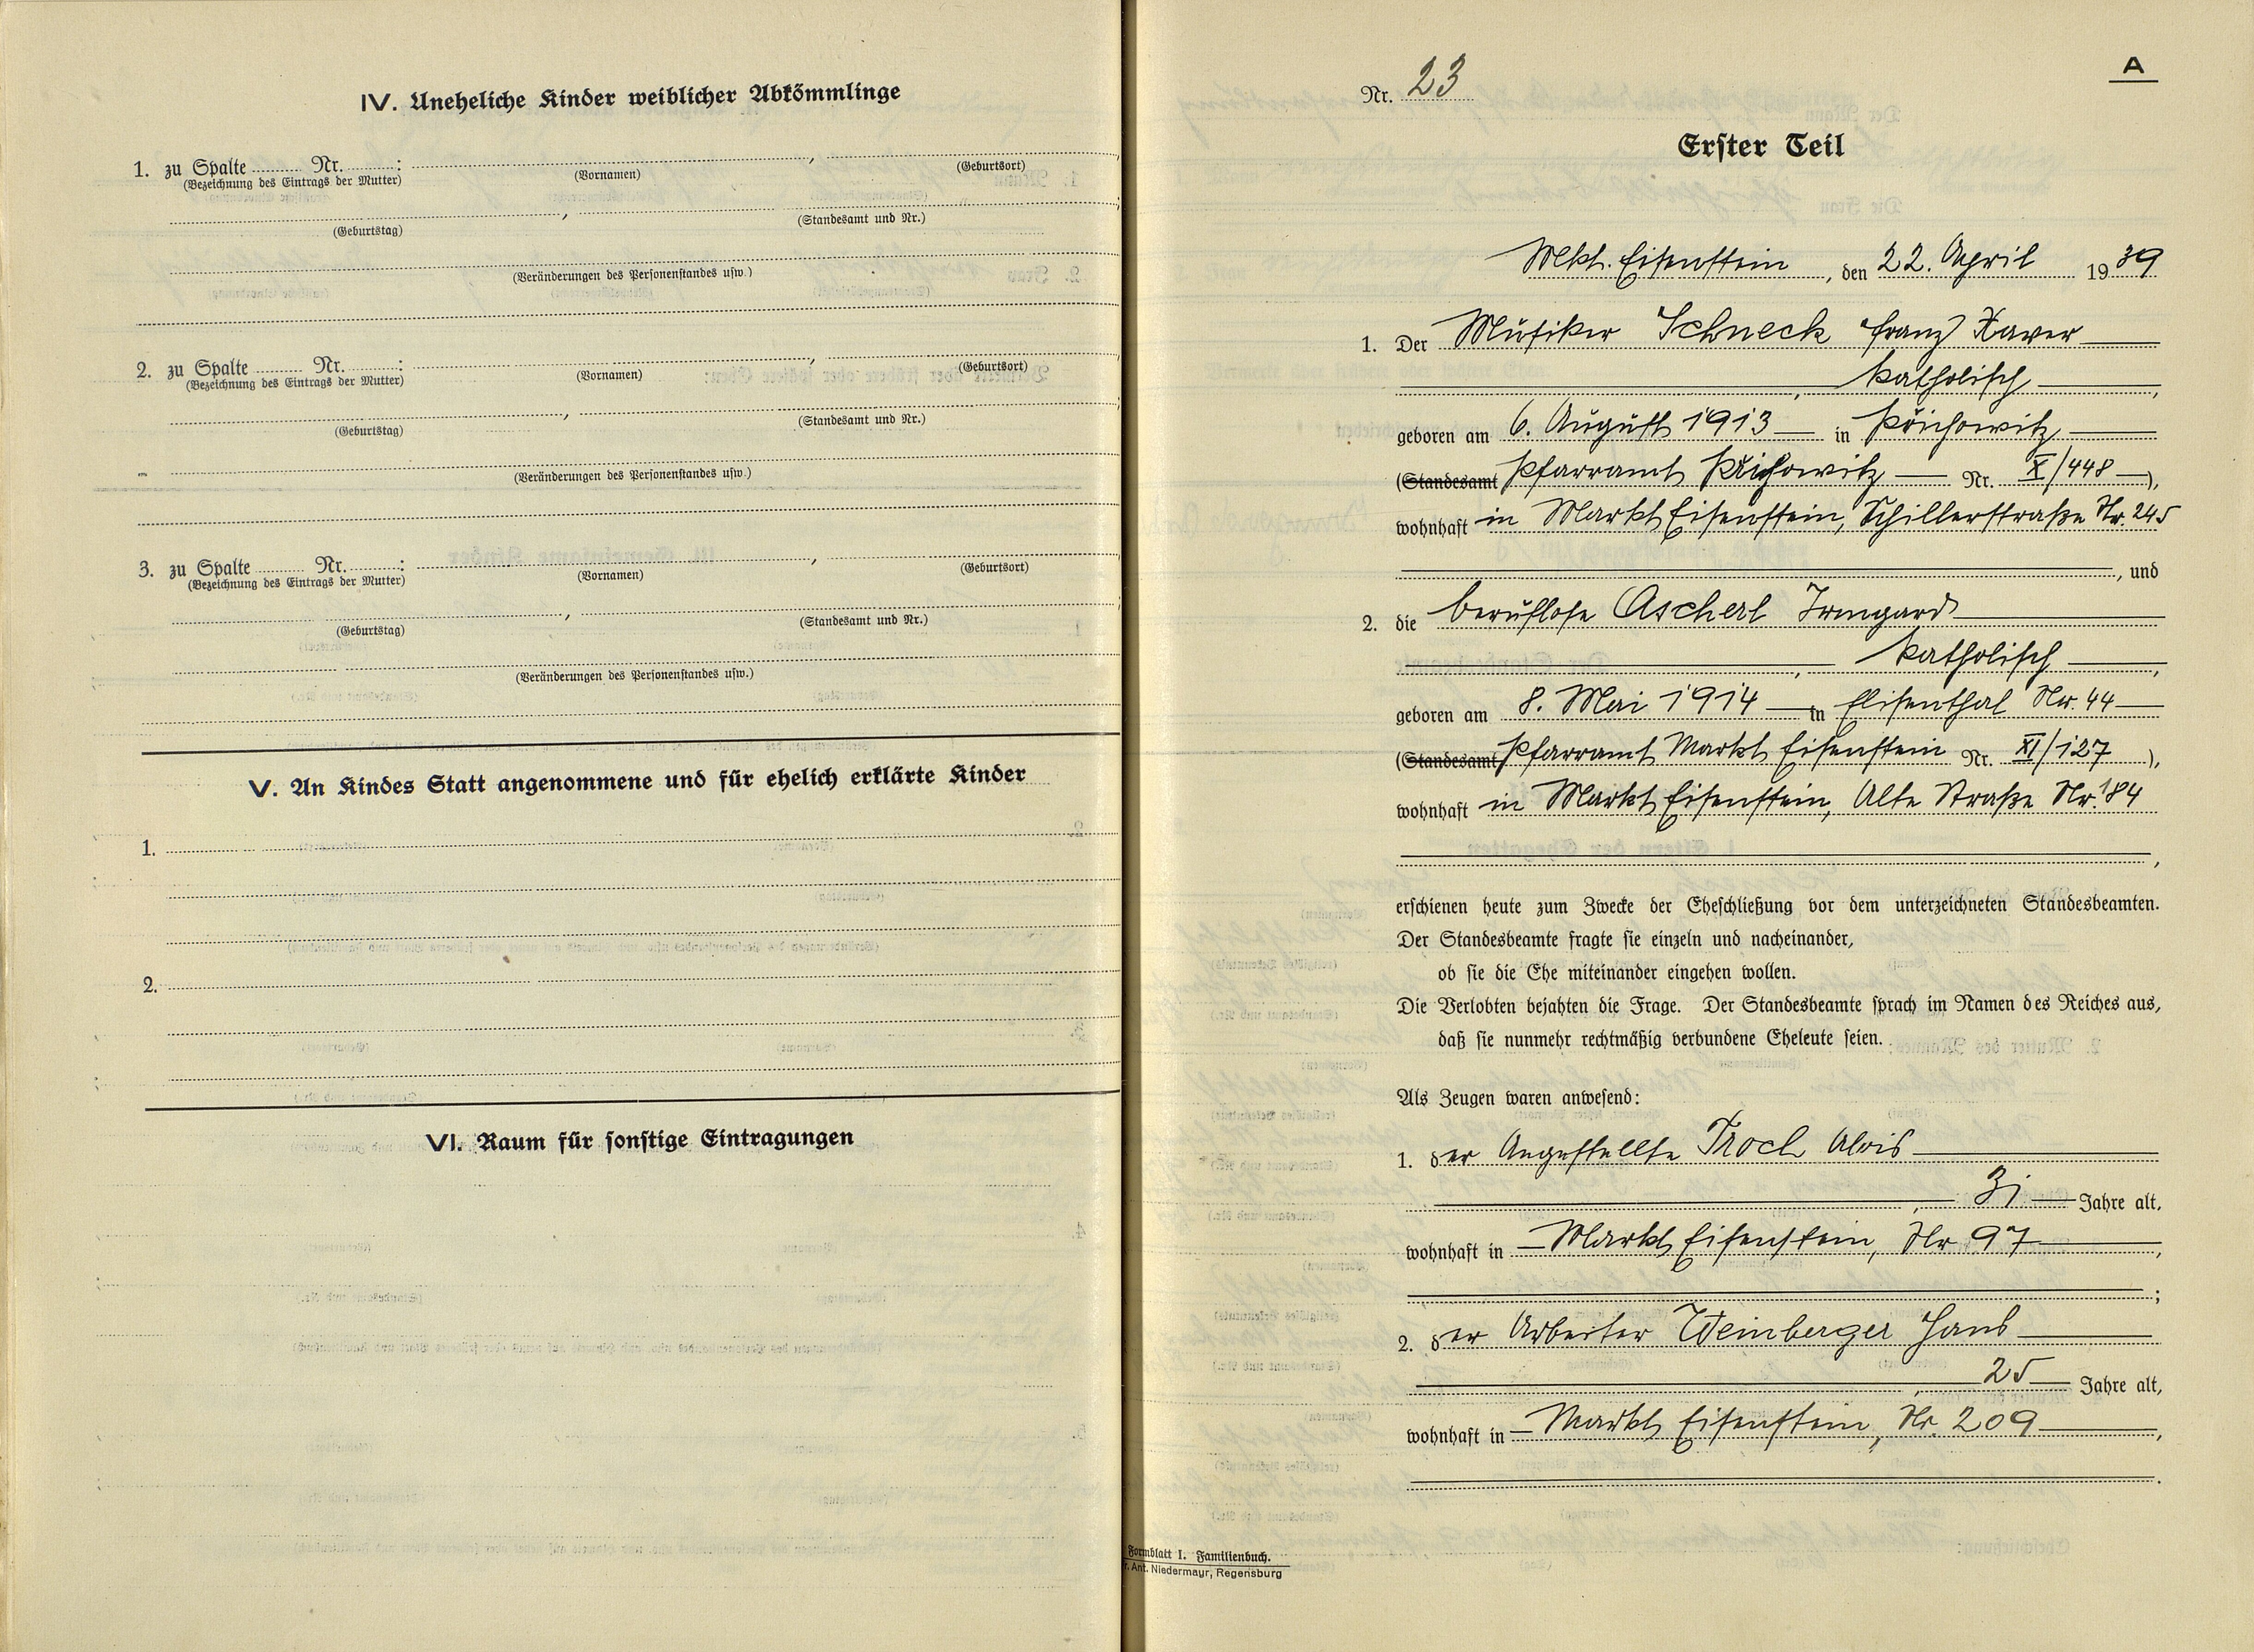 IV. Uneheliche Kinder weiblicher Abkömmlinge
1. zu Spalte ......... Nr. .........: ........., .........
(Bezeichnung des Eintrags der Mutter) (Vornamen) (Geburtsort)
........., .........
(Geburtstag) (Standesamt und Nr.)
(Veränderungen des Personenstandes usw.)
2. zu Spalte ......... Nr. .........: ........., .........
(Bezeichnung des Eintrags der Mutter) (Vornamen) (Geburtsort)
........., .........
(Geburtstag) (Standesamt und Nr.)
(Veränderungen des Personenstandes usw.)
3. zu Spalte ......... Nr. .........: ........., .........
(Bezeichnung des Eintrags der Mutter) (Vornamen) (Geburtsort)
........., .........
(Geburtstag) (Standesamt und Nr.)
(Veränderungen des Personenstandes usw.)
V. An Kindes Statt angenommene und für ehelich erklärte Kinder
1.
2.
VI. Raum für sonstige Eintragungen
A
Nr. 23
Erster Teil
Mkt. Eisenstein, den 22. April 1939
1. Der Musiker Schneck Franz Xaver
, katholisch,
geboren am 6. August 1913 in Přichowitz
(Standesamt Pfarramt Přichowitz Nr. X/448),
wohnhaft in Markt Eisenstein, Schillerstraße Nr. 245
, und
2. die berufslose Ascherl Irmgard
, katholisch,
geboren am 8. Mai 1914 in Elisenthal Nr. 44
(Standesamt Pfarramt Markt Eisenstein Nr. XI/127),
wohnhaft in Markt Eisenstein, Alte Straße Nr. 184
,
erschienen heute zum Zwecke der Eheschließung vor dem unterzeichneten Standesbeamten.
Der Standesbeamte fragte sie einzeln und nacheinander,
ob sie die Ehe miteinander eingehen wollen.
Die Verlobten bejahten die Frage. Der Standesbeamte sprach im Namen des Reiches aus,
daß sie nunmehr rechtmäßig verbundene Eheleute seien.
Als Zeugen waren anwesend:
1. der Angestellte Troch Alois
, 31 Jahre alt,
wohnhaft in Markt Eisenstein, Nr 97,
;
2. der Arbeiter Weinberger Hans
, 25 Jahre alt,
wohnhaft in Markt Eisenstein, Nr. 209,
.
Formblatt I. Familienbuch.
Ant. Niedermayr, Regensburg